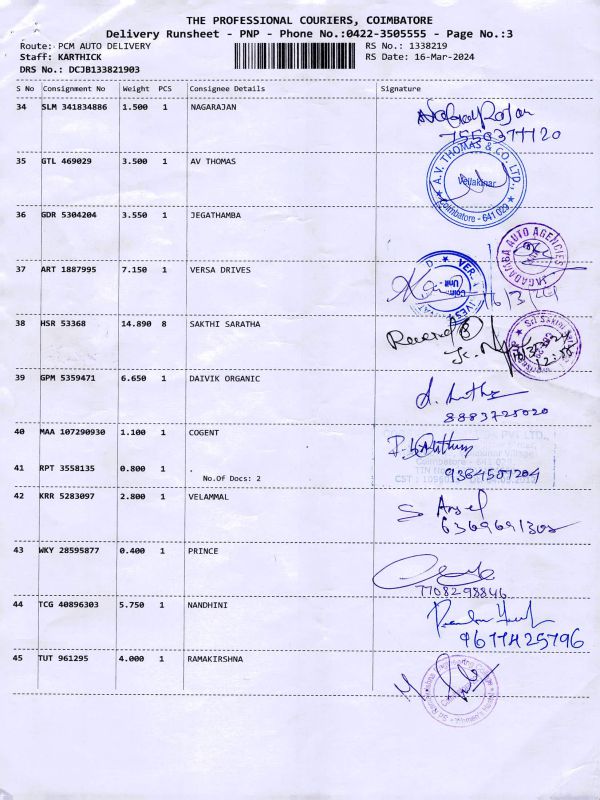 THE PROFESSIONAL COURIERS, COIMBATORE
Delivery Runsheet - PNP - Phone No.:0422-3505555 - Page No.:3
Route: PCM AUTO DELIVERY RS No.: 1338219
Staff: KARTHICK RS Date: 16-Mar-2024
DRS No.: DCJB133821903
S No Consignment No Weight PCS Consignee Details Signature
34 SLM 341834886 1.500 1 NAGARAJAN
35 GTL 469029 3.500 1 AV THOMAS
A.V. THOMAS & CO. LTD.,
Vellakinar
Coimbatore - 641 029
36 GDR 5304204 3.550 1 JEGATHAMBA
JAGADAMBA AUTO AGENCIES
37 ART 1887995 7.150 1 VERSA DRIVES
Unit
38 HSR 53368 14.890 8 SAKTHI SARATHA
39 GPM 5359471 6.650 1 DAIVIK ORGANIC
8883725020
40 MAA 107290930 1.100 1 COGENT
41 RPT 3558135 0.800 1
No.Of Docs: 2
9384507204
42 KRR 5283097 2.800 1 VELAMMAL
6369691302
43 WKY 28595877 0.400 1 PRINCE
7708298846
44 TCG 40896303 5.750 1 NANDHINI
9677425796
45 TUT 961295 4.000 1 RAMAKIRSHNA